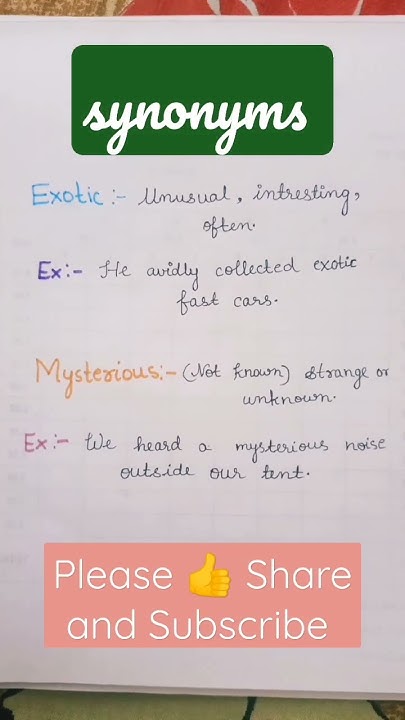 synonyms
Exotic:- Unusual, intresting,
often.
Ex:- He avidly collected exotic
fast cars.
Mysterious:- (Not known) strange or
unknown.
Ex:- We heard a mysterious noise
outside our tent.
Please 👍 Share
and Subscribe